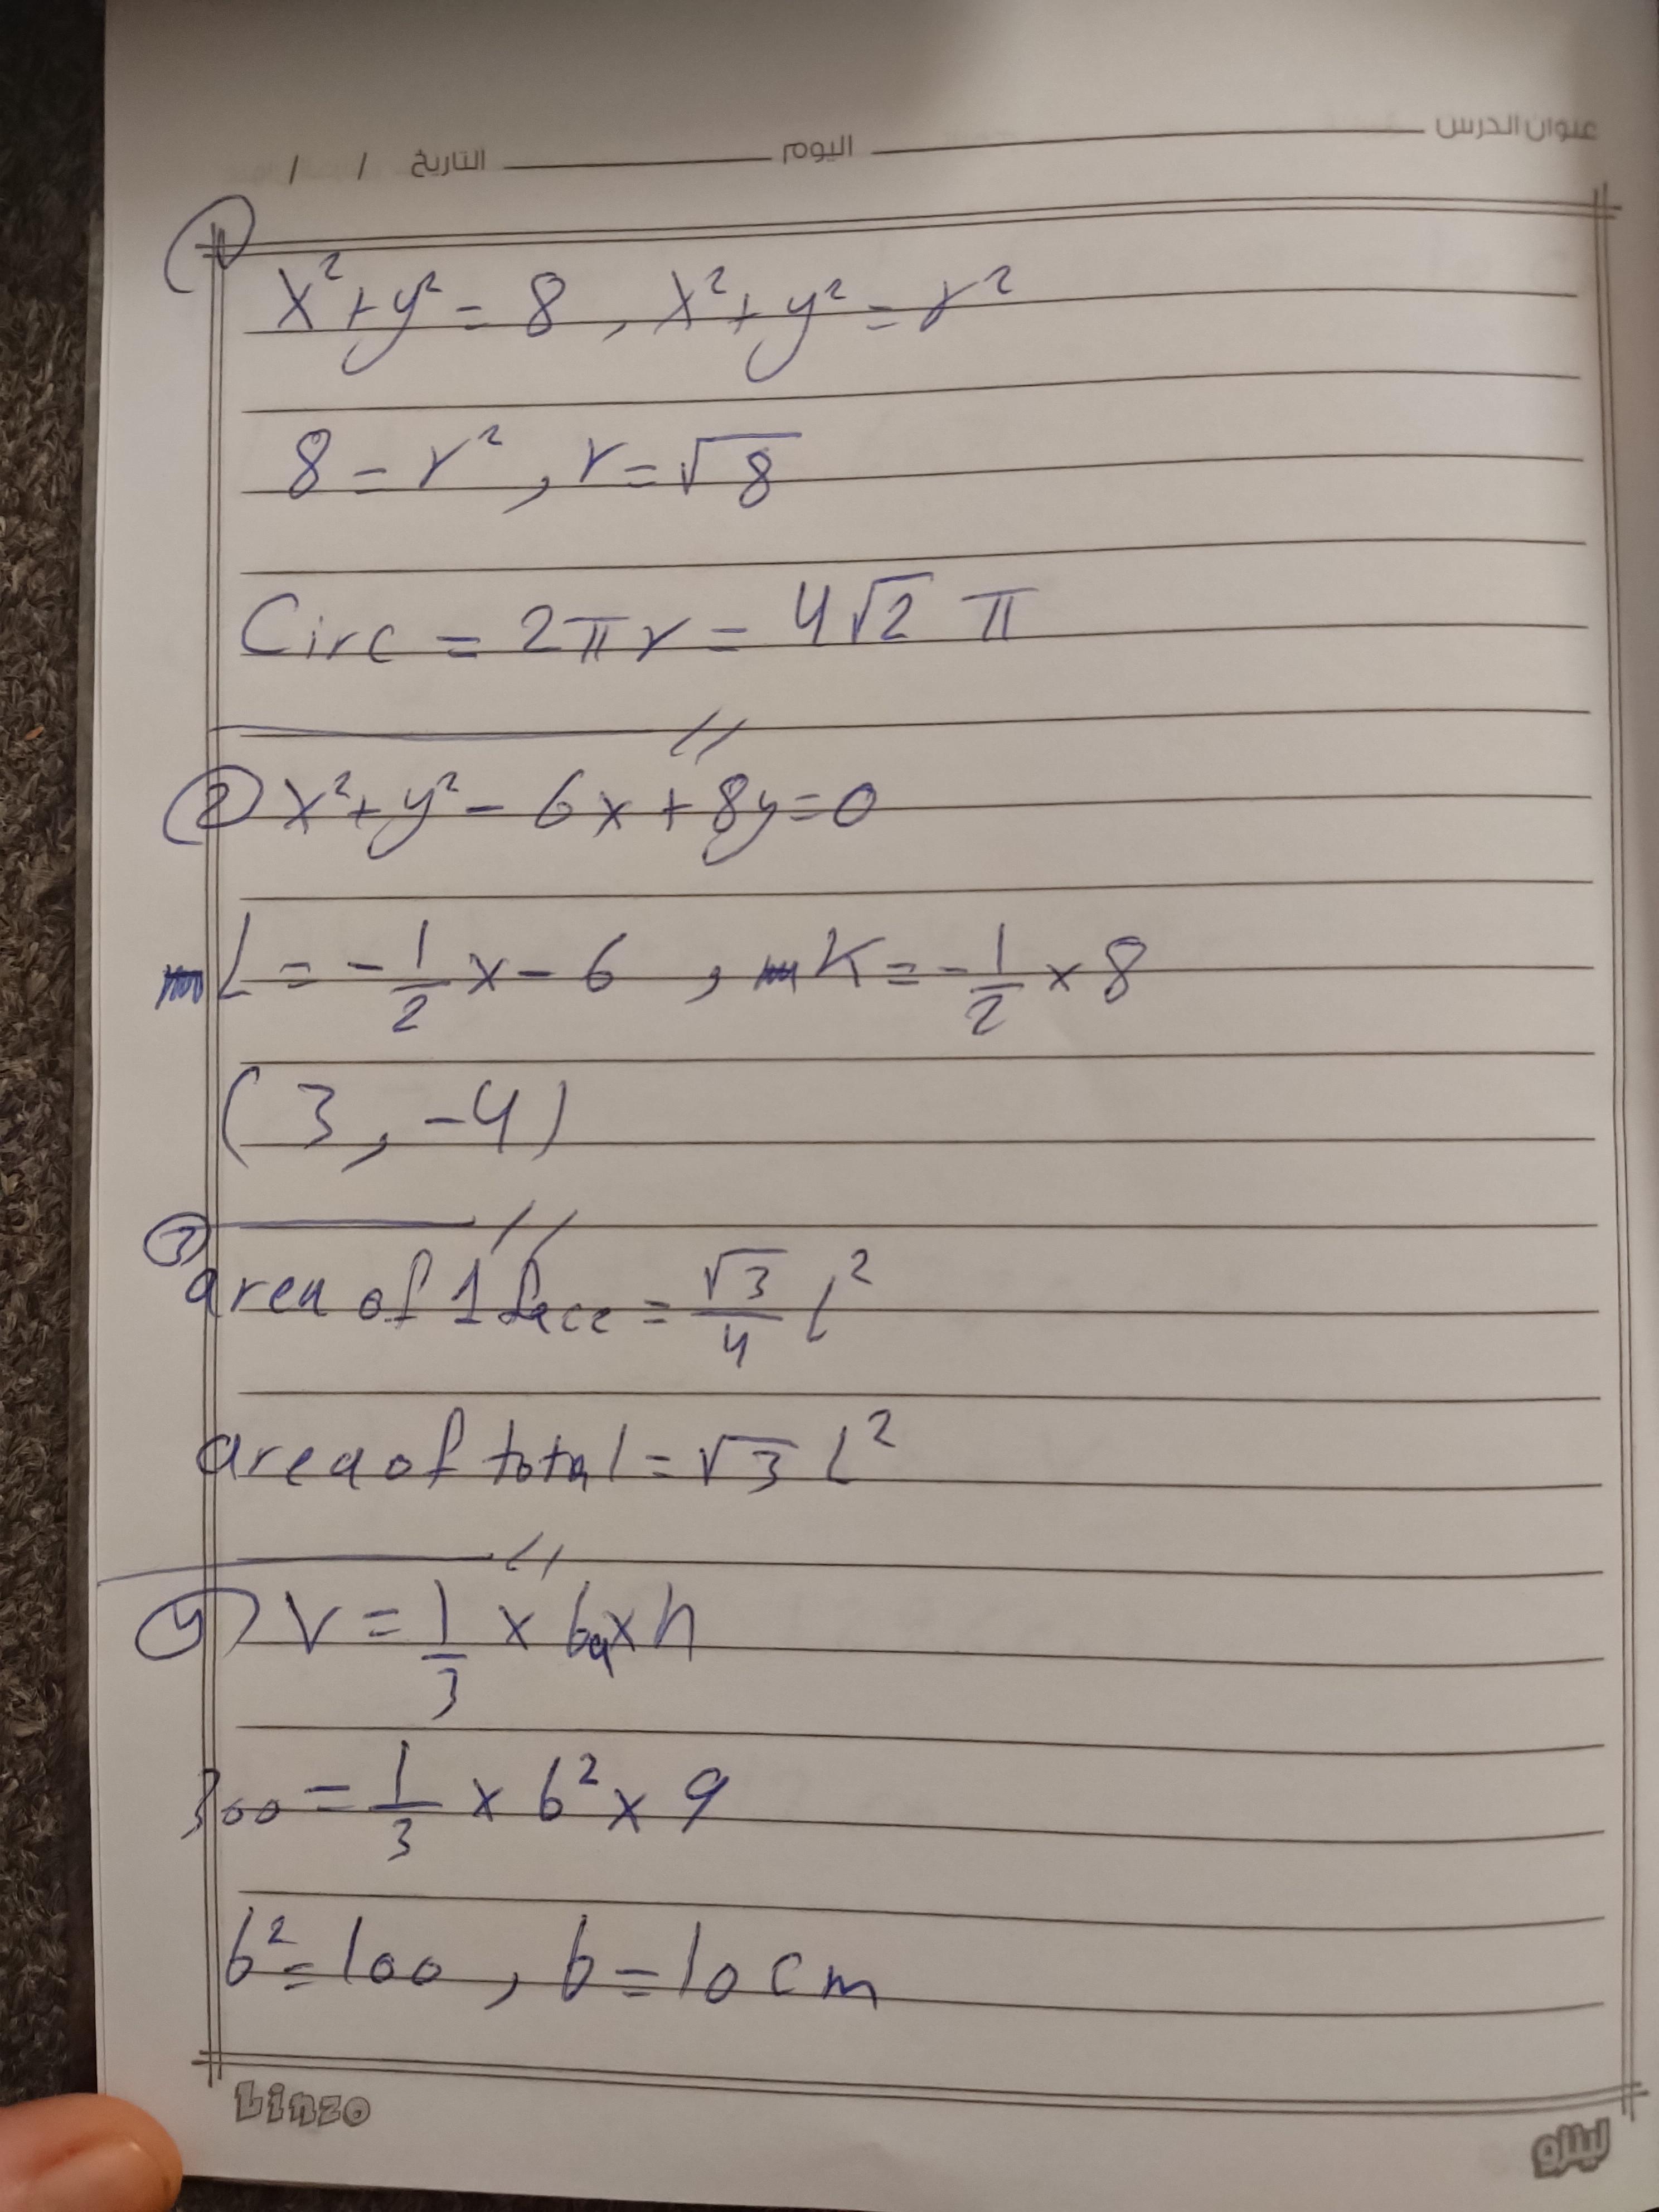 عنوان الدرس اليوم التاريخ / /
1
x²+y²=8, x²+y²=r²
8=r², r=√8
Circ=2πr=4√2 π
2 x²+y²-6x+8y=0
L=-1/2x-6, K=-1/2×8
(3,-4)
3
area of 1 face=√3/4 L²
area of total=√3 L²
4 V=1/3×ba×h
300=1/3×b²×9
b²=100, b=10cm
Linzo
لينزو